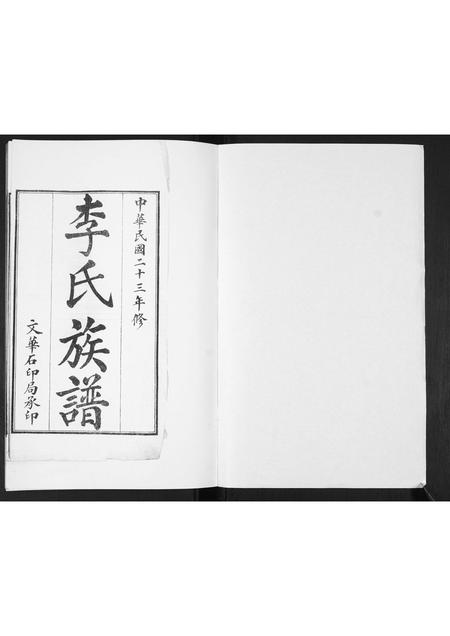 中華民國二十三年修
李氏族譜
文華石印局承印